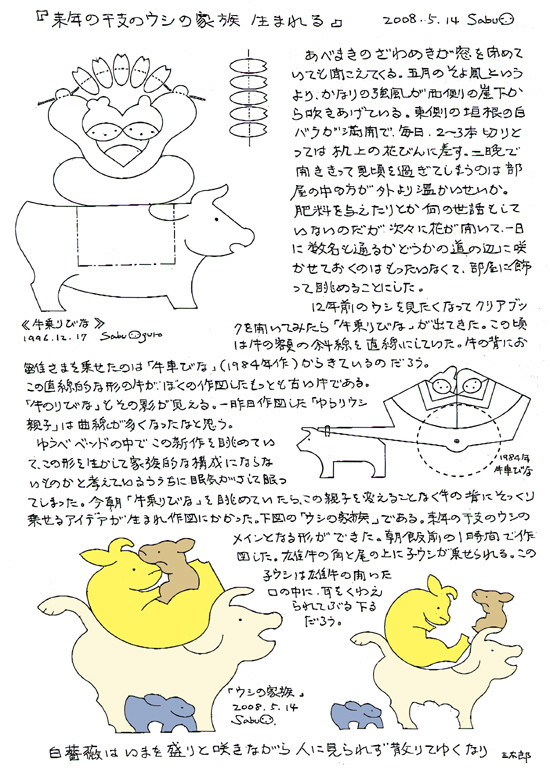 『来年の干支のウシの家族 生まれる』 2008.5.14 Sabu
あべまきのざわめきが窓を閉めて
いても聞こえてくる。五月のそよ風という
より、かなりの強風が西側の崖下か
ら吹きあげている。東側の垣根の白
バラが満開で、毎日、2〜3本切りと
っては机上の花びんに差す。二晩で
開ききって見頃を過ぎてしまうのは部
屋の中の方が外より温かいせいか。
肥料を与えたりとか何の世話をして
いないのだが次々に花が開いて、一日
に数名も通るかどうかの道の辺に咲
かせておくのはもったいなくて、部屋に飾
って眺めることにした。
《牛乗りびな》
1996.12.17 Sabu Oguro
12年前のウシを見たくなってクリアブッ
クを開いてみたら「牛乗りびな」が出てきた。この頃
は牛の額の斜線を直線にしていた。牛の背にお
雛さまを乗せたのは「牛車びな」(1984年作)からきているのだろう。
この直線的な形の牛がぼくの作図したもっとも古い牛である。
「牛のりびな」もその影が見える。一昨日作図した「ゆらりウシ
親子」は曲線が多くなったなと思う。
ゆうべベッドの中でこの新作を眺めてい
て、この形を生かして家族的な構成にならな
いものかと考えているうちに眠気がさして眠っ
てしまった。今朝「牛乗りびな」を眺めていたら、この親子を変えることなく牛の背にそっくり
乗せるアイデアが生まれ作図にかかった。下図の「ウシの家族」である。来年の干支のウシの
メインとなる形ができた。朝飯前の1時間で作
図した。雄牛の角と尾の上に子ウシが乗せられる。この
子ウシは雄牛の開いた
口の中に、耳をくわえ
られてぶる下る
だろう。
1984年
牛車びな
「ウシの家族」
2008.5.14
Sabu
白薔薇はいまを盛りと咲きながら 人に見られず散りてゆくなり 三太郎